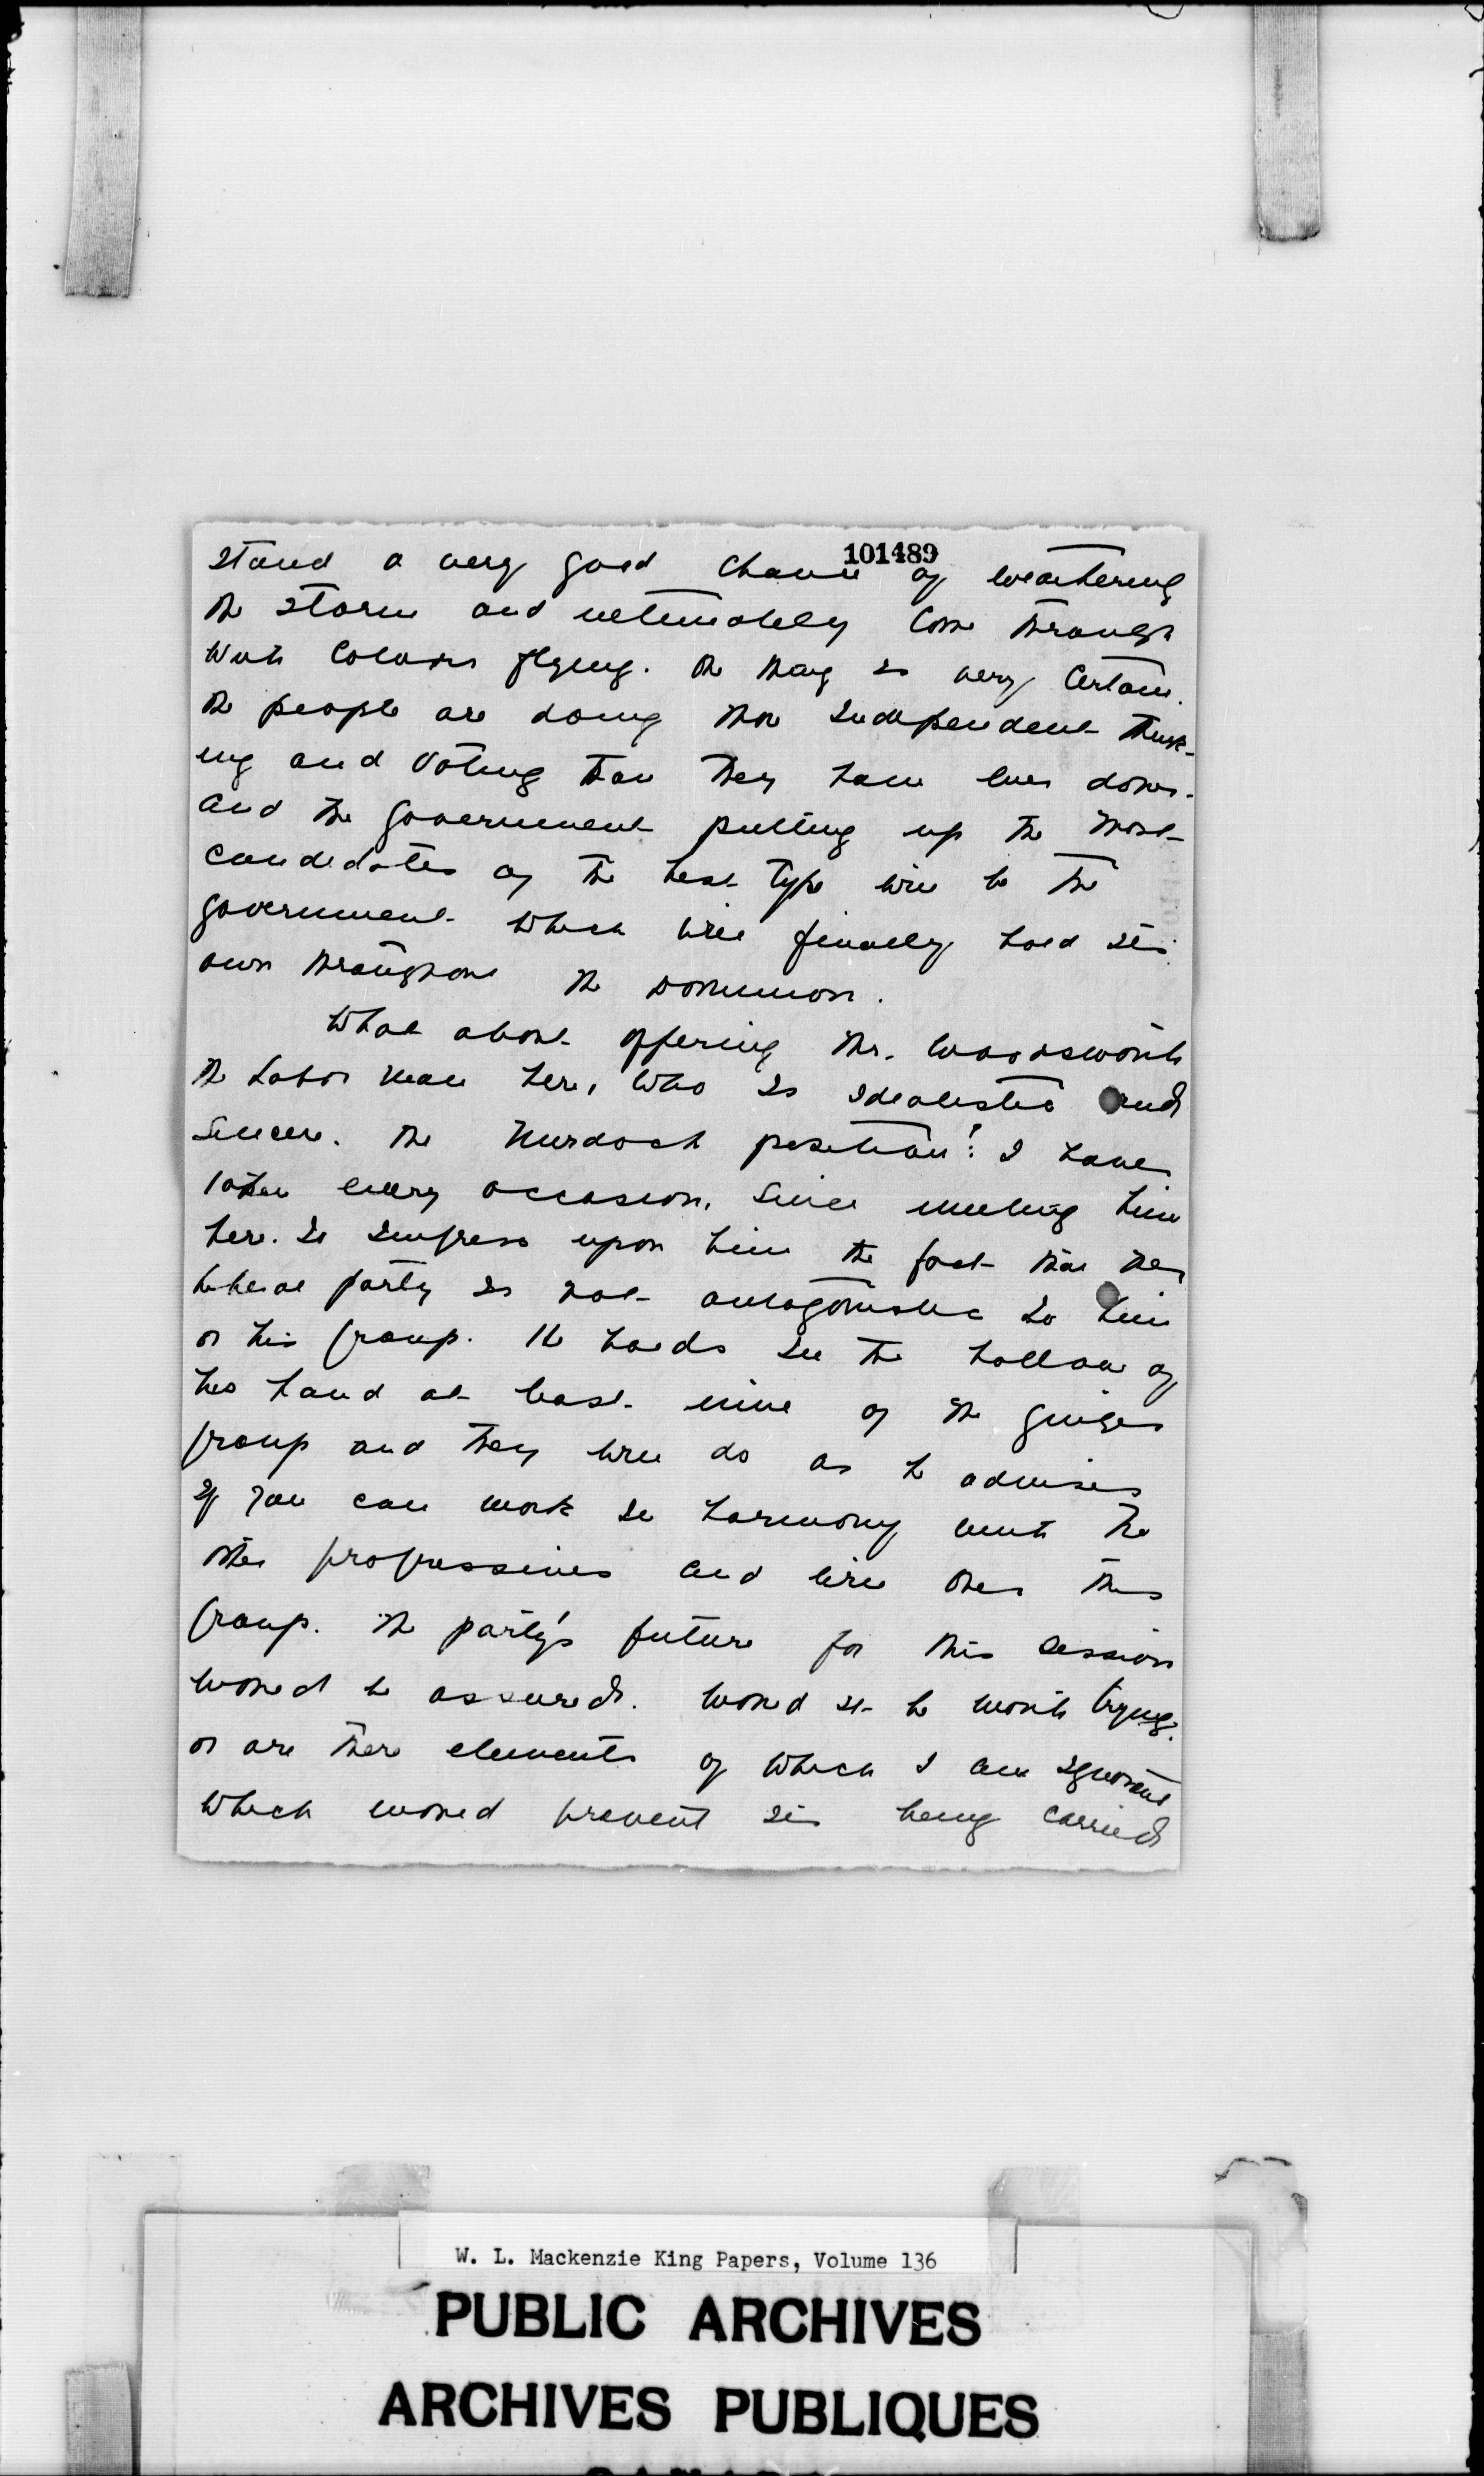 101489
stand a very good chance of weathering
the storm and ultimately come through
with colours flying. One thing is very certain.
The people are doing more independent think-
ing and voting than they have ever done.
and the government putting up the most
candidates of the best type will be the
government which will finally hold its
own throughout the Dominion.
What about offering Mr. Woodsworth
the Labor man here, who is idealistic and
sincere. the Murdock position? I have
taken every occasion, since meeting him
here. to impress upon him the fact that the
Liberal party is not antagonistic to him
or his group. He holds in the hollow of
his hand at least nine of the ginger
group and they will do as he advises
If you can work in harmony with the
other progressives and win over this
group. the party's future for this session
would be assured. Would it be worth trying?
or are there elements of which I am ignorant
which would prevent its being carried
W. L. Mackenzie King Papers, Volume 136
PUBLIC ARCHIVES
ARCHIVES PUBLIQUES